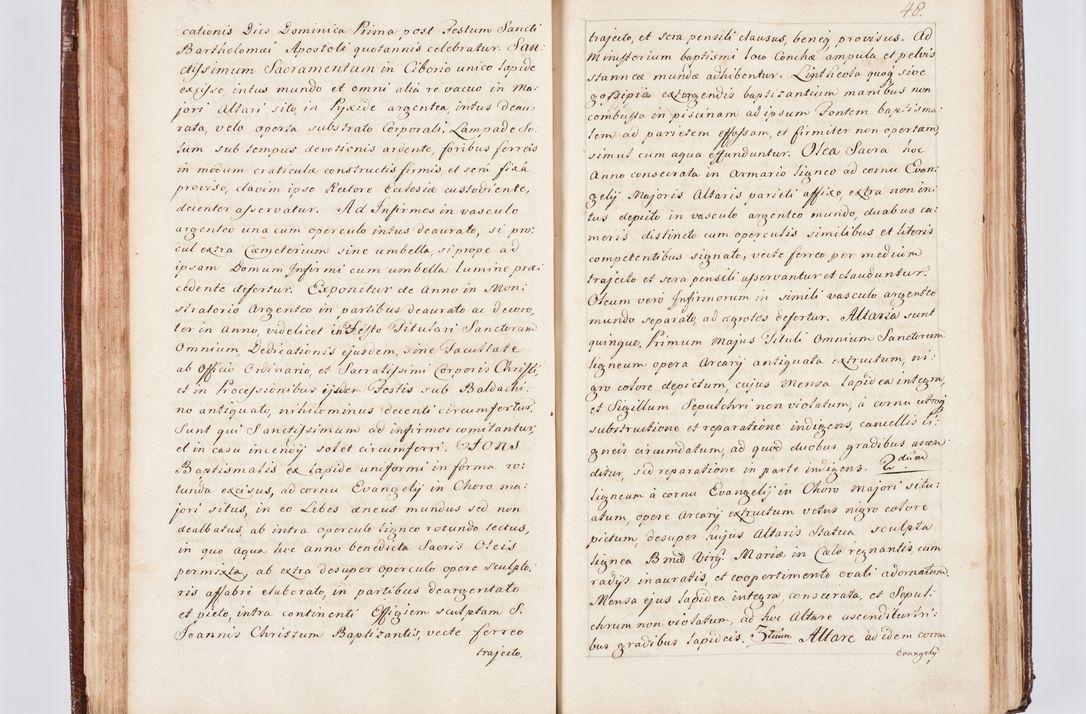 cationis Dies Dominica Prima post Festum Sancti
Bartholomæi Apostoli quotannis celebratur. San:
ctissimum Sacramentum in Ciborio unico lapide
exciso, intus mundo et omni alia re vacuo in Ma:
jori Altari sito, in Pyxide argentea, intus deau:
rata, velo operta substrato Corporali, Lampade So:
lum sub tempus devotionis ardente, foribus ferreis
in modum craticulæ constructis firmis, et serâ fixâ
proviso, clavim ipso Rectore Ecclesiæ custodiente,
decenter asservatur. Ad Infirmos in vasculo
argenteo una cum operculo intus deaurato, si pro:
cul extra Cæmeterium sine umbella, si prope ad
ipsam Domum Infirmi cum umbella lumine præ:
cedente defertur. Exponitur de Anno in Mon:
stratorio Argenteo in partibus deaurato ac decoro,
ter in Anno, videlicet in Festo Titulari Sanctorum
Omnium, Dedicationis ejusdem, sine Facultate
ab Officio Ordinario, et Sacratissimi Corporis Christi,
et in Processionibus iisdem Festis sub Baldachi:
no antiquato, nihilominus decenti circumfertur.
Sunt qui Sanctissimum ad infirmos comitantur,
et in casu incendij solet circumferri. FONS
Baptismalis ex lapide uniformi in forma ro:
tunda excisus, ad cornu Evangelij in Choro ma:
jori situs, in eo Lebes æneus mundus sed non
dealbatus, ab intra operculo ligneo rotundo tectus,
in quo Aqua hoc anno benedicta Sacris Oleis
permixta, ab extra desuper operculo opere sculpto:
ris affabre elaborato, in partibus deargentato
et picto, intra continenti Effigiem sculptam S.
Joannis Christum Baptizantis, vecte ferreo
trajecto,
48.
trajecto, et sera pensili clausus, beneq provisus. Ad
Ministerium baptismi loco Conchæ ampula et pelvis
stanneæ mundæ adhibentur. Linthicola quoq sive
gossipia extergendis baptizantium manibus non
combusta in piscinam ad ipsum Fontem baptisma:
lem ad parietem effossam, et firmiter non opertam,
simul cum aqua effunduntur. Olea Sacra hoc
Anno consecrata in Armario ligneo ad cornu Evan:
gelij Majoris Altaris parieti affixo, extra non in:
tus depicto in vasculo argenteo mundo, duabus ca:
meris distincto cum operculis similibus et literis
competentibus signato, vecte ferreo per medium
trajecto et sera pensili asservantur et clauduntur.
Oleum verò Infirmorum in simili vasculo argenteo
mundo separato, ad ægrotos defertur. Altaria sunt
quinque. Primum Majus Tituli Omnium Sanctorum
ligneum opera Arcarij antiquata extructum, ni:
gro colore depictum, cujus Mensa lapidea integra,
et Sigillum Sepulchri non violatum, à cornu utroq
substructione et reparatione indigens, cancellis li:
gneis circumdatum, ad quod duobus gradibus ascen:
ditur, sed reparatione in parte indigens. 2dum
ligneum à cornu Evangelij in Choro Majori situ:
atum, opere Arcarij extructum vetus nigro colore
pictum, desuper hujus Altaris Statua sculpta
lignea Bmæ Virg: Mariæ in Cælo regnantis, cum
radijs inauratis, et coopertimento ovali adornatum.
Mensa ejus lapidea integra, consecrata, et Sepul:
chrum non violatum, ad hoc Altare ascenditur tri:
bus gradibus lapideis. 3tium Altare ad idem cornu
Evangelij